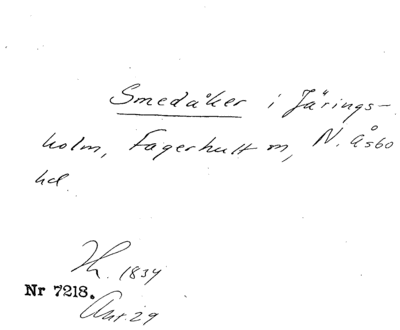 Smedåker i Järings-
holm, Fagerhult m, N. Åsbo
hd.
Th. 1834
Nr 7218.
Avr. 29